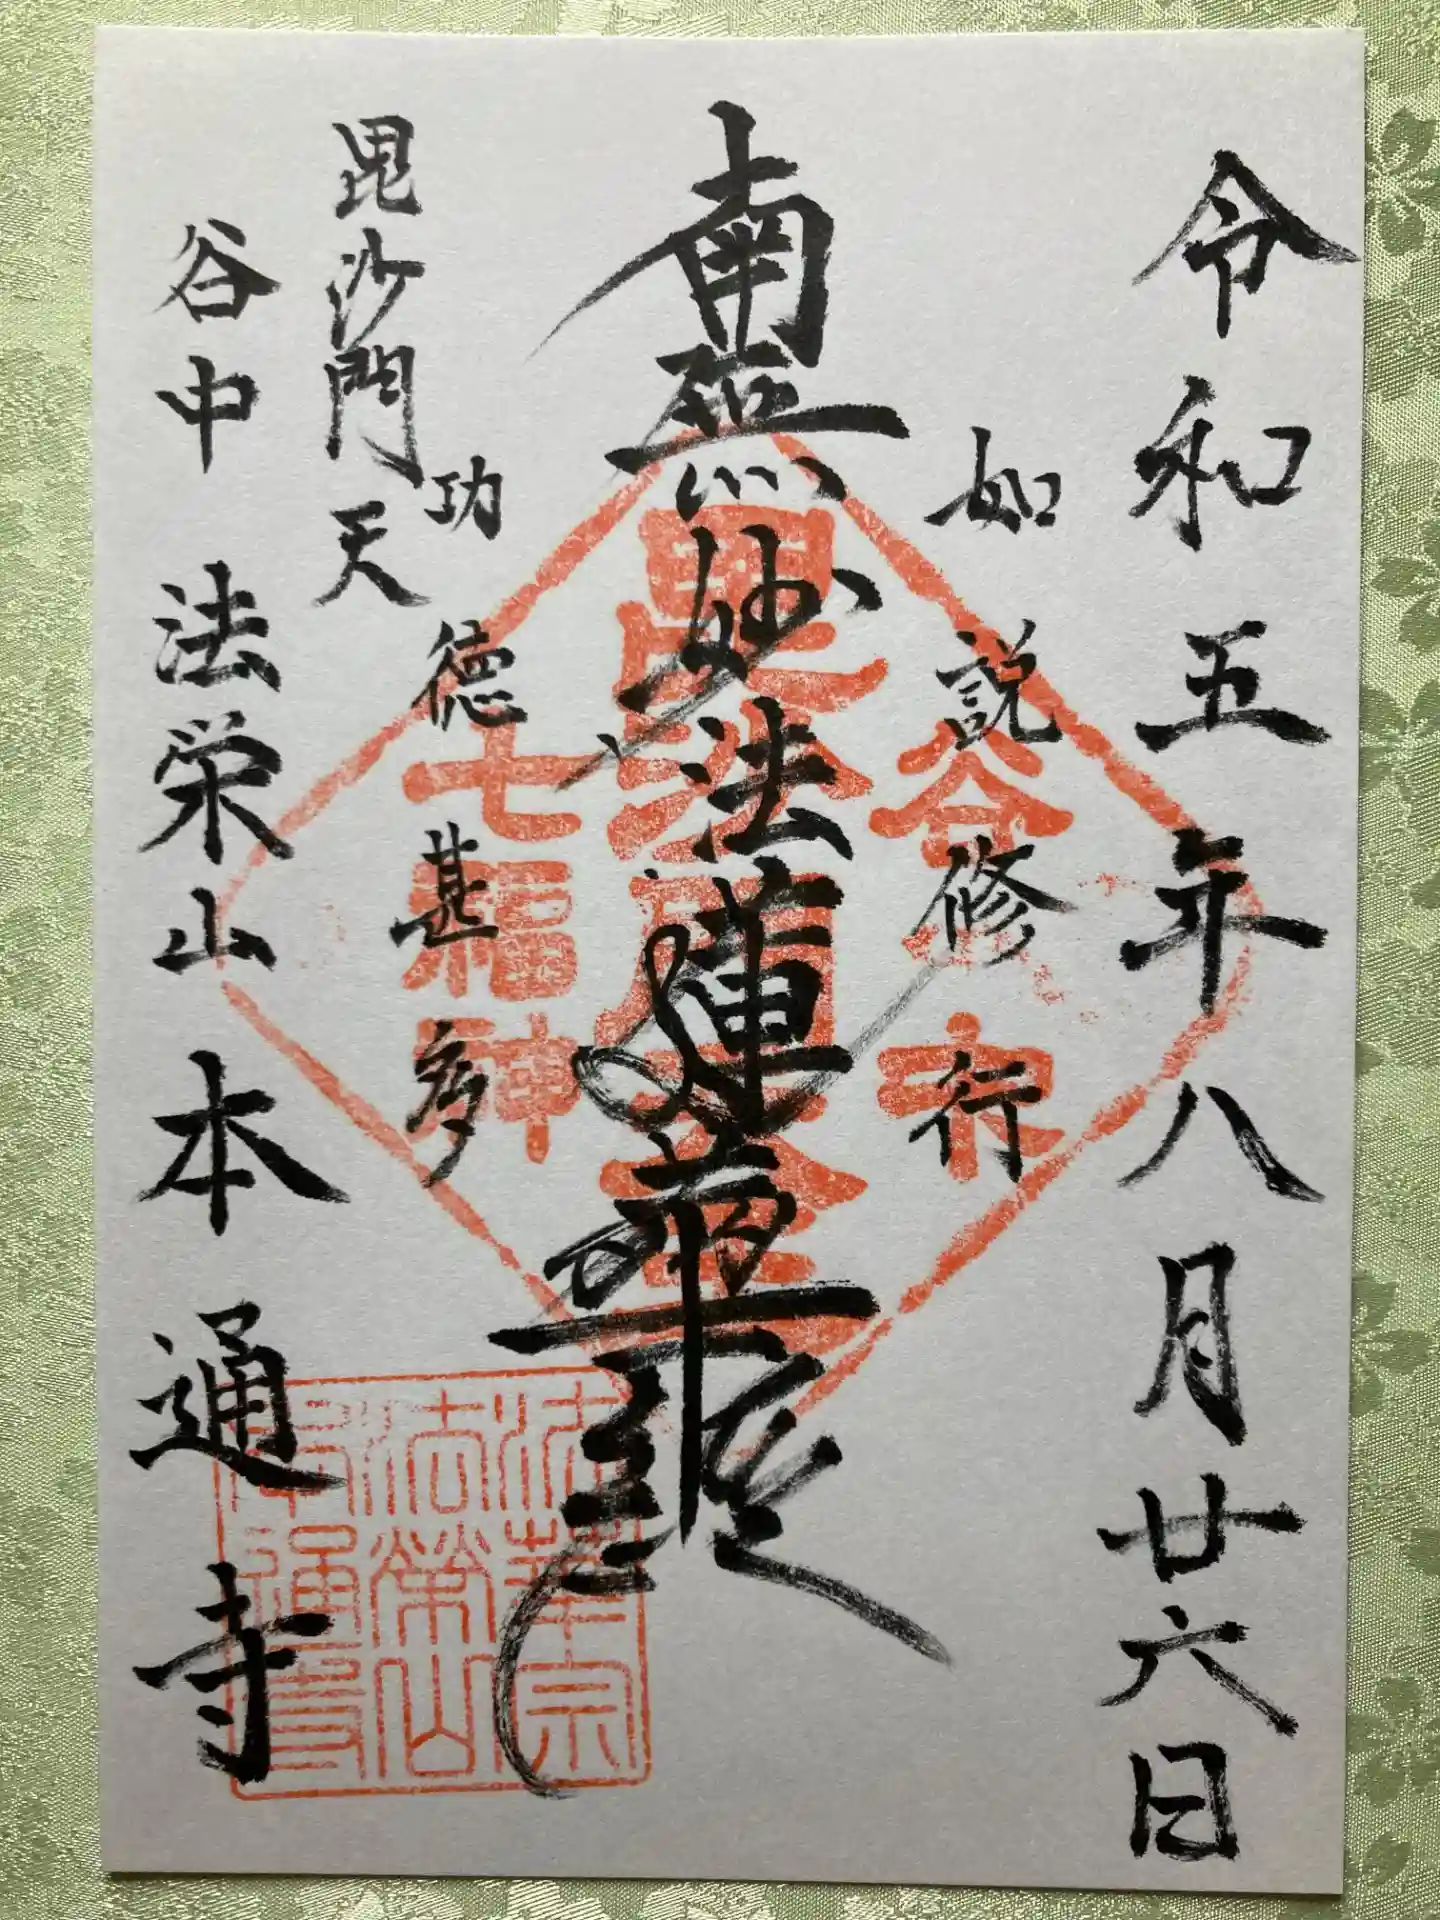 令和五年八月廿六日
如説修行
南無妙法蓮華経
功徳甚多
毘沙門天
谷中 法栄山 本通寺
七福神
法華宗
法榮山
本通寺